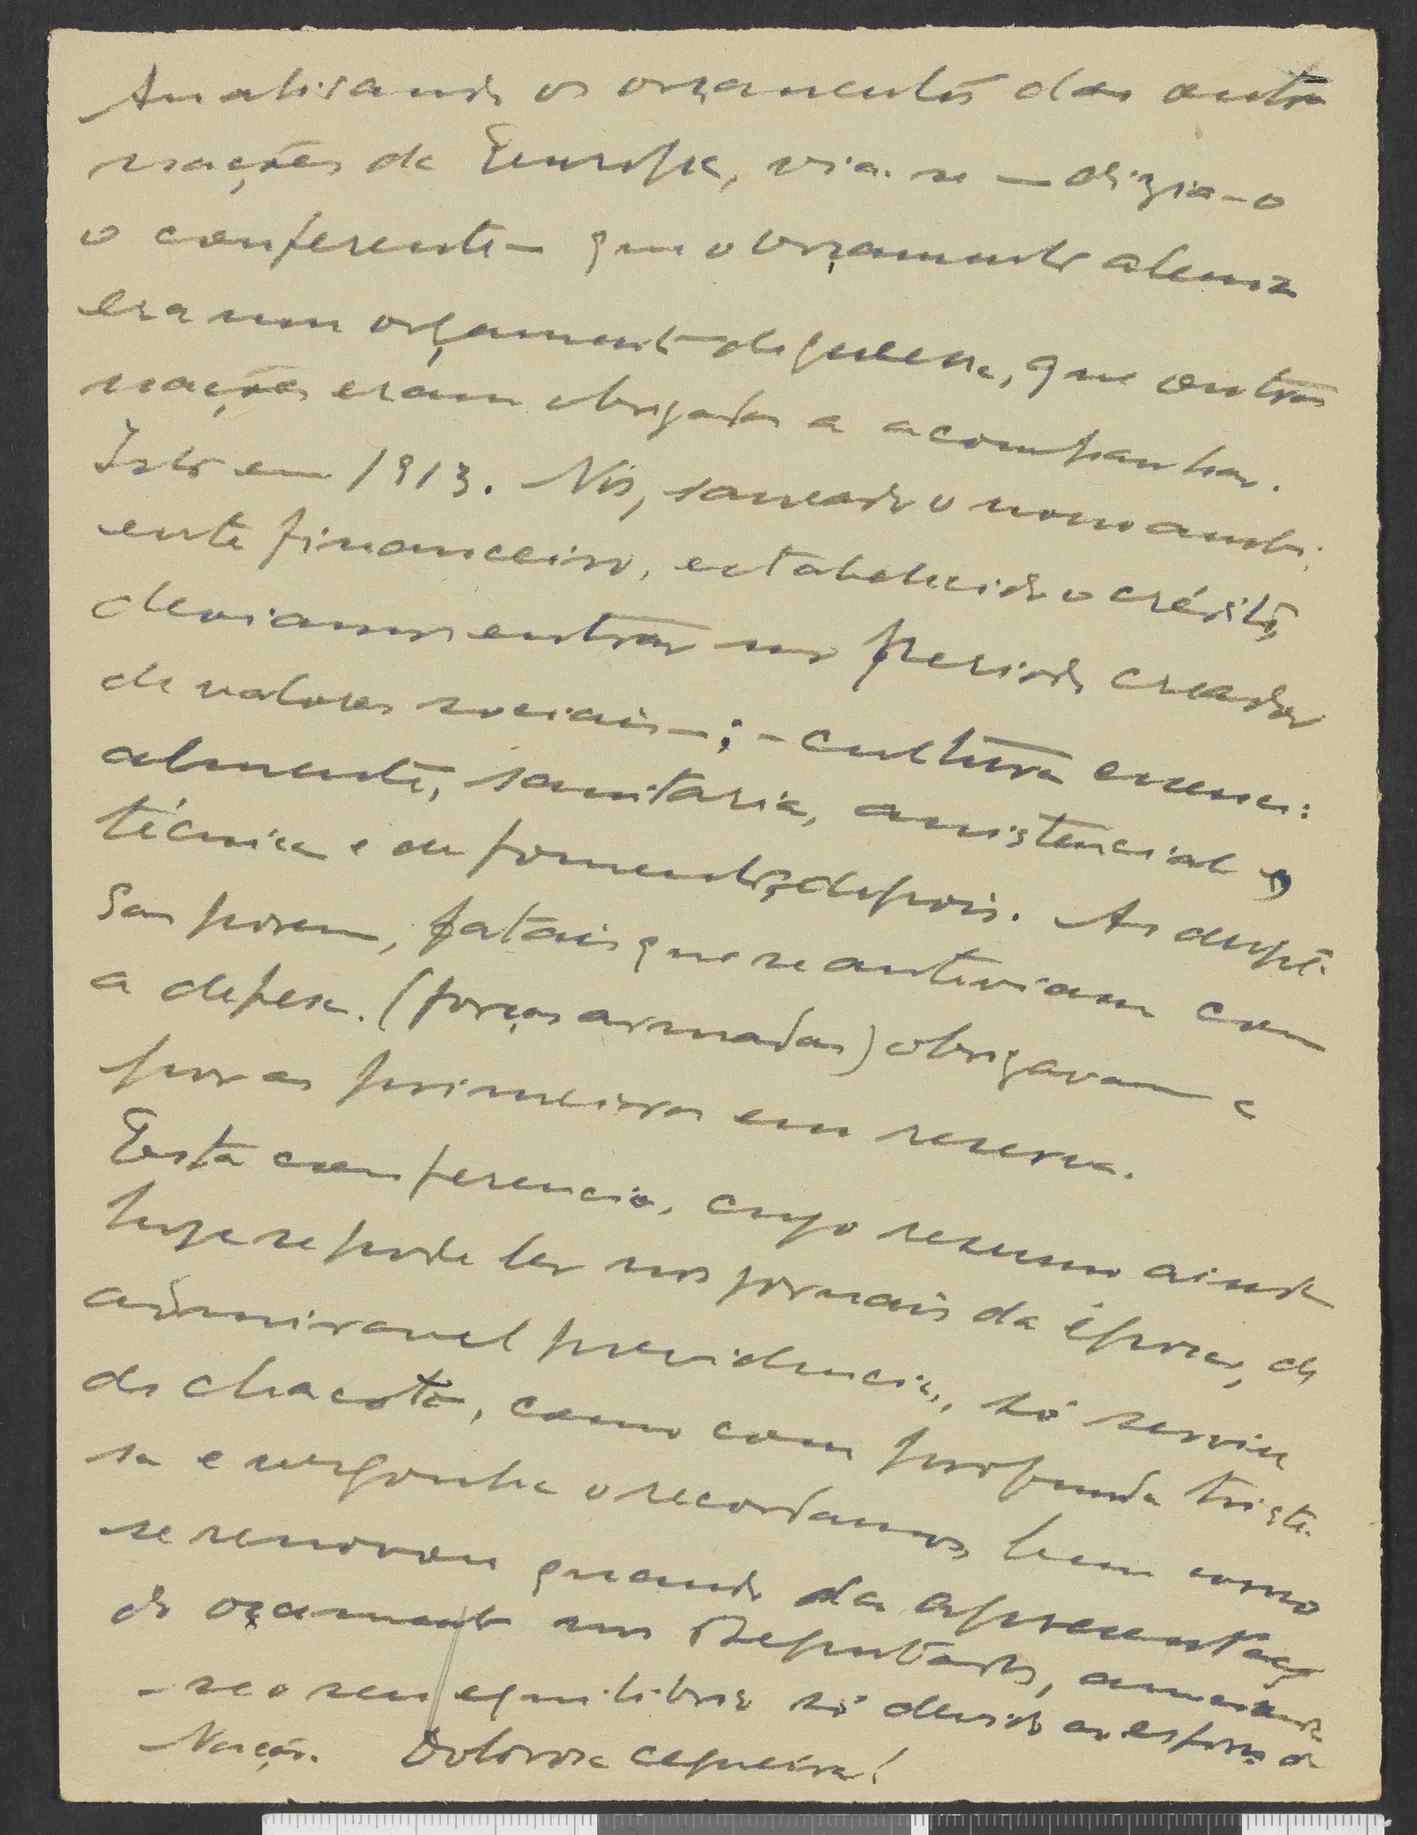 Analisando os orçamentos das outras
nações da Europa, via-se — dizia-o
o conferente — que o orçamento alemão
era um orçamento de guerra, que outras
nações eram obrigadas a acompanhar.
Isto em 1913. Nós, saneado o nosso ambi-
ente financeiro, estabelecido o crédito,
deviamos entrar no periodo creador
de valores sociais — ; — cultura essenci-
almente, sanitaria, assistencial,
técnica e de fomento, depois. As despê-
sas porem, fatais que se anteviam com
a defesa. (forças armadas) obrigavam a
por as primeiras em reserva.
Esta conferencia, cujo resumo ainda
hoje se pode ler nos jornais da época, de
admiravel previdencia, só serviu
de chacota, como com profunda triste-
sa e vergonha o recordamos, bem como
se renovou quando da apresentação
do oçamento nos Deputados, anunciando-
-se o seu equilibrio só devido ao esforço da
Nação. Dolorosa cegueira!